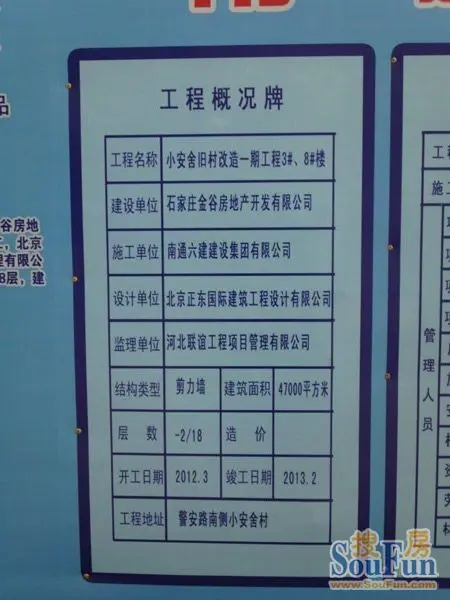 工程概况牌
工程名称 小安舍旧村改造一期工程3#、8#楼
建设单位 石家庄金谷房地产开发有限公司
施工单位 南通六建建设集团有限公司
设计单位 北京正东国际建筑工程设计有限公司
监理单位 河北联谊工程项目管理有限公司
结构类型 剪力墙 建筑面积 47000平方米
层数 -2/18 造价
开工日期 2012.3 竣工日期 2013.2
工程地址 警安路南侧小安舍村
品
谷房地
北京
理有限公
8层，建
工
施
管理人员
搜房
SouFun
www.SouFun.com